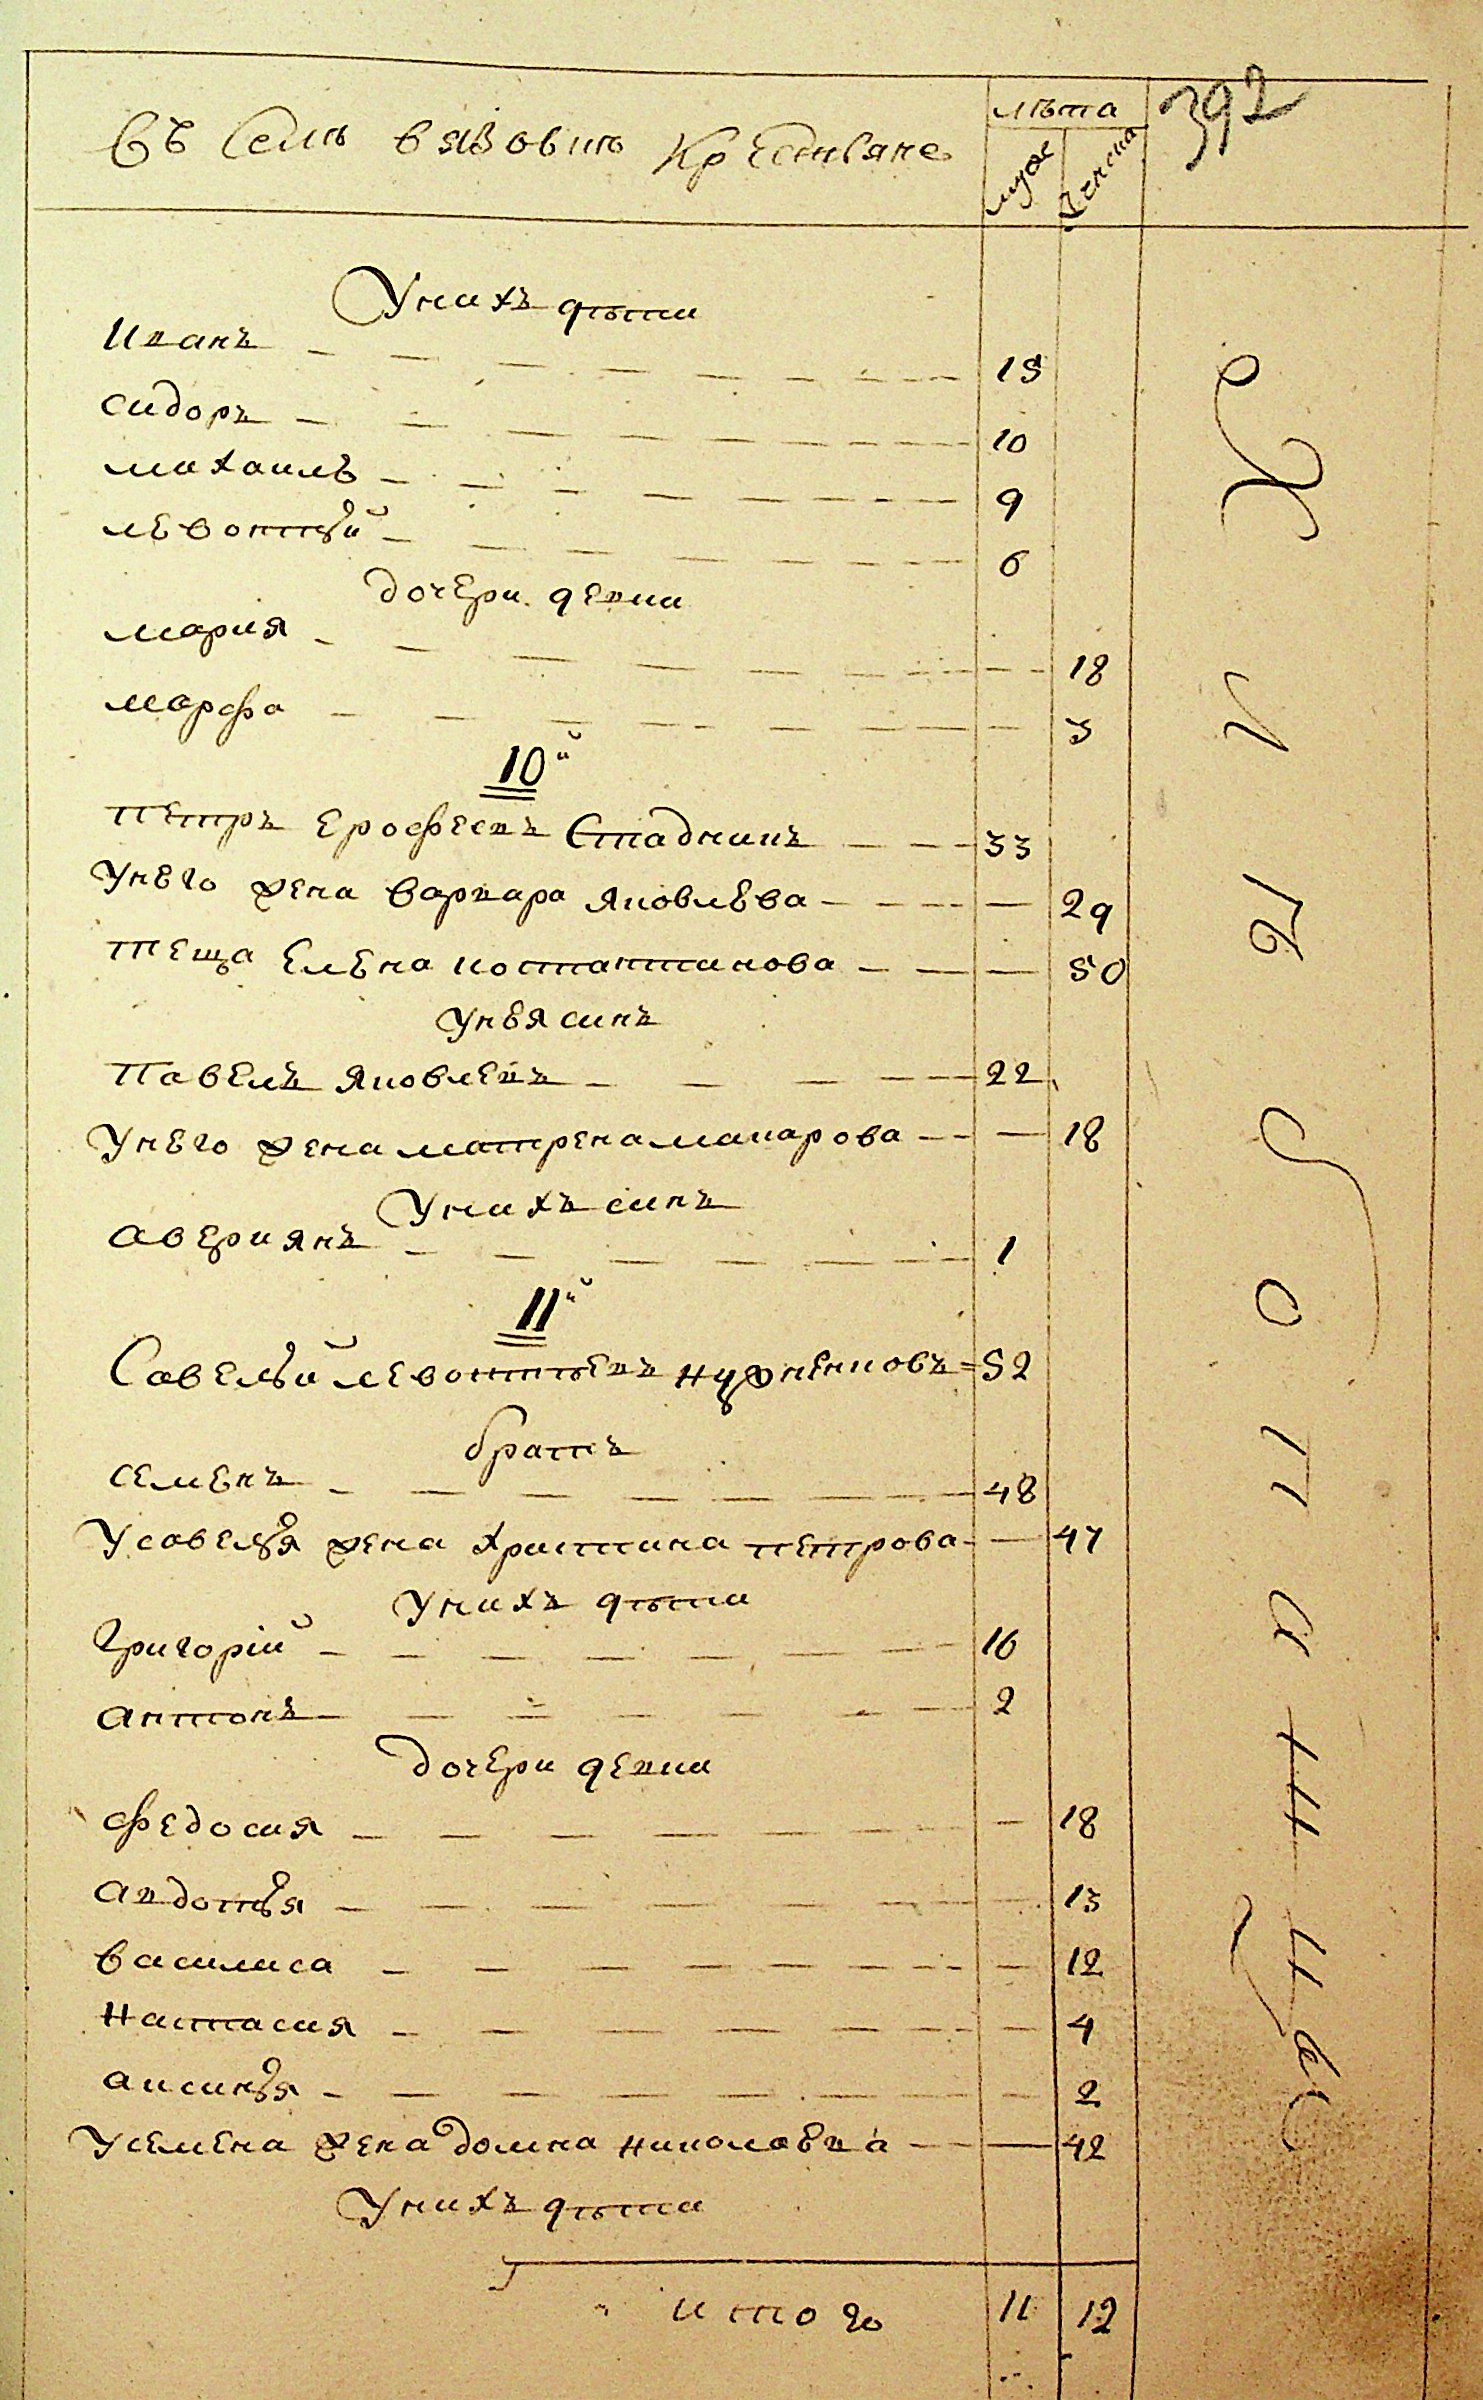 Въ селѣ вязовкѣ крестьяне
лѣта
392
муж
женска
Унихъ дѣти
иванъ 15
сидоръ 10
михаилъ 9
левонтьй 6
дочери девки
мария 18
марфа 3
10й
петръ ерофеевъ Стадникъ 33
унего жена варвара яковлева 29
теща Елена костантинова 50
унея синъ
павелъ яковлевъ 22
унего жена матрена макарова 18
Унихъ синъ
авериянъ 1
11й
Савельй левонтьевъ нужненковъ 52
братъ
семенъ 48
Усавелья жена христина петрова 47
Унихъ дѣти
Григорій 16
антонъ 2
дочери девки
федосия 18
авдотья 13
василиса 12
настасия 4
аксинья 2
Усемена жена домна николаева 42
Унихъ дѣти
итого 11 12